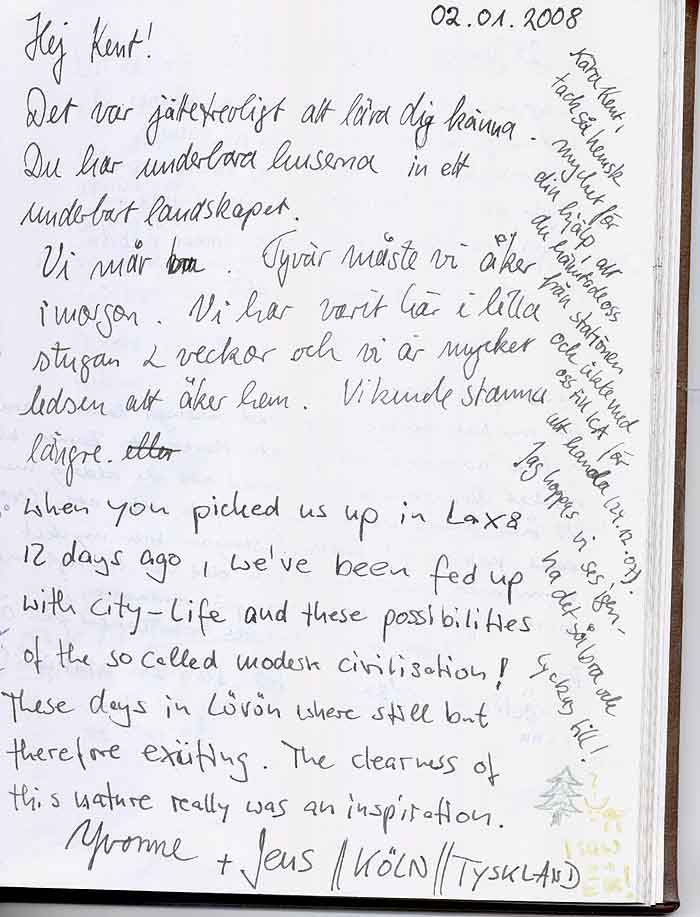 02.01.2008
Hej Kent!
Det var jättetrevligt att lära dig känna.
Du har underbara huserna in ett
underbart landskapet.
Vi mår bra. Tyvär måste vi åker
i morgon. Vi har varit här i lilla
stugan 2 veckor och vi är mycket
ledsen att åker hem. Vi kunde stanna
längre. eller
when you picked us up in Laxå
12 days ago, we've been fed up
with City-Life and these possibilities
of the so called modern civilisation!
These days in Lövön where still but
therefore exiting. The clearness of
this nature really was an inspiration.
Yvonne + Jens // KÖLN // TYSKLAND
Kära Kent,
tack så hemsk
mycket för
din hjälp, att
du hämtade oss
från stationen
och åkte med
oss till ICA för
att handla (24.12.07).
Jag hoppas vi ses igen-
ha det så bra och
lyckas till!